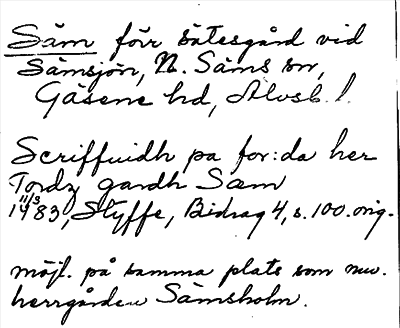 Säm förr sätesgård vid
Sämsjön, N. Säms sn,
Gäsene hd, Älvsb. l.
Scriffuidh pa for:da her
Tordz gardh Sæm
11/3
1483, Styffe, Bidrag 4, s. 100. orig.
möjl. på samma plats som nuv.
herrgården Sämsholm.